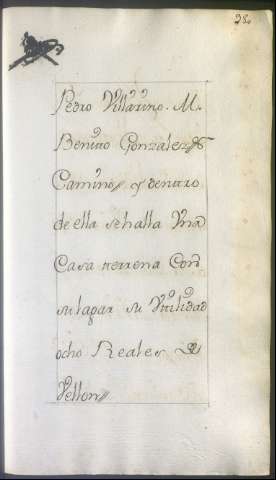 28.
Pedro Villarino. M.
Benito Gonzalez
Camino y dentro
de ella se halla Una
Casa terrena Con
su lapar su Vtilidad
ocho Reales
Vellon